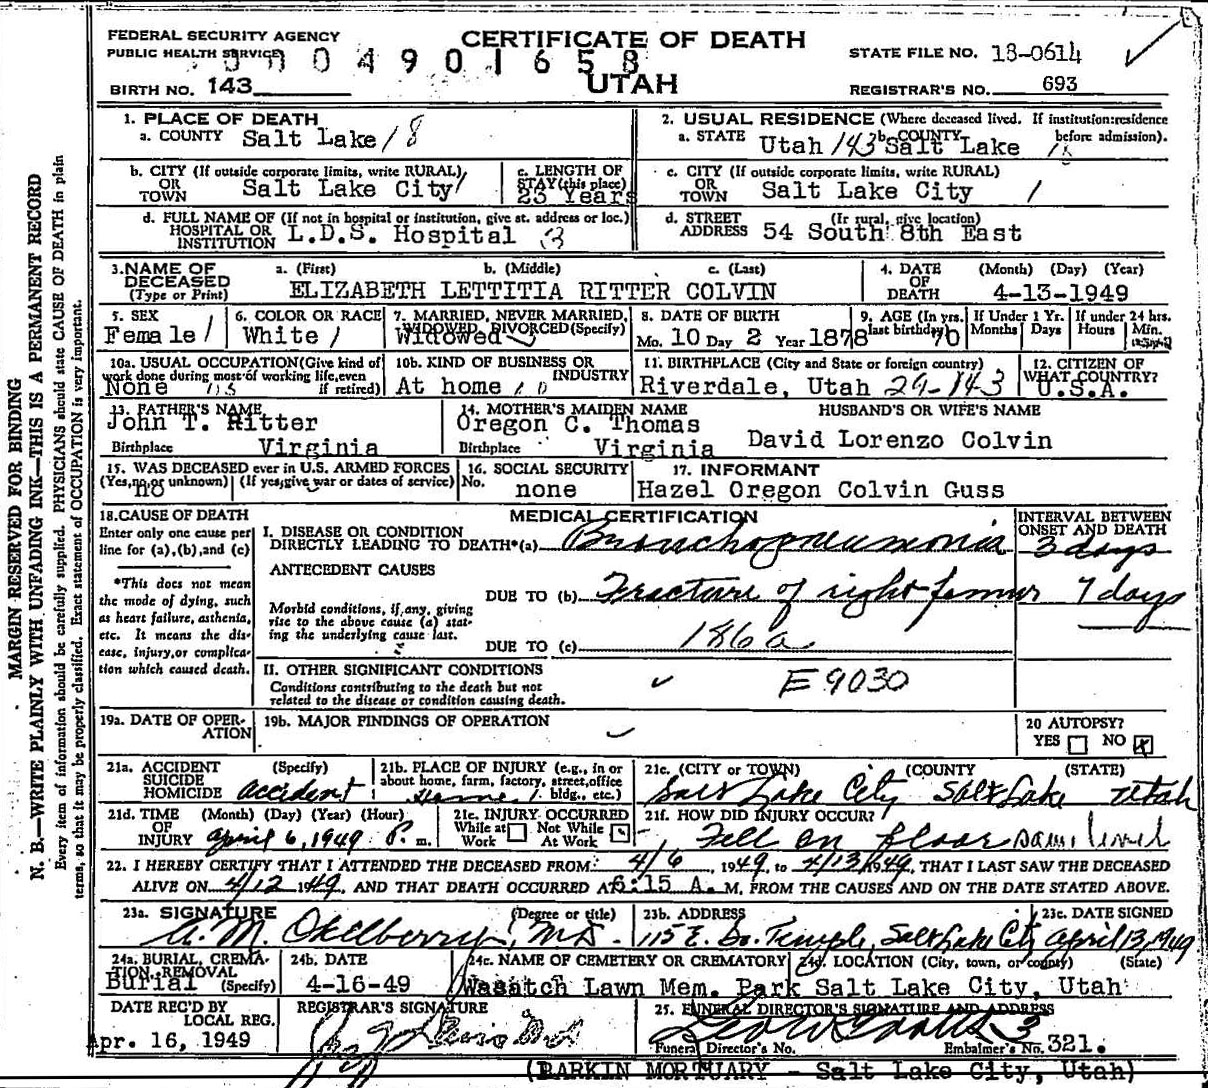 FEDERAL SECURITY AGENCY
PUBLIC HEALTH SERVICE
CERTIFICATE OF DEATH
UTAH
STATE FILE NO. 18-0614
BIRTH NO. 143
REGISTRAR'S NO. 693
1. PLACE OF DEATH
a. COUNTY Salt Lake 18
2. USUAL RESIDENCE (Where deceased lived. If institution:residence before admission).
a. STATE Utah 143 b. COUNTY Salt Lake 18
b. CITY (If outside corporate limits, write RURAL) OR TOWN Salt Lake City
c. LENGTH OF STAY (this place) 23 Years
c. CITY (If outside corporate limits, write RURAL) OR TOWN Salt Lake City 1
d. FULL NAME OF (If not in hospital or institution, give st. address or loc.) HOSPITAL OR INSTITUTION L.D.S. Hospital 3
d. STREET ADDRESS (Ir rural, give location) 54 South 8th East
3. NAME OF DECEASED (Type or Print) a. (First) b. (Middle) c. (Last)
ELIZABETH LETTITIA RITTER COLVIN
4. DATE OF DEATH (Month) (Day) (Year) 4-13-1949
5. SEX Female 1
6. COLOR OR RACE White 1
7. MARRIED, NEVER MARRIED, WIDOWED, DIVORCED (Specify) Widowed
8. DATE OF BIRTH Mo. 10 Day 2 Year 1878
9. AGE (In yrs. last birthday) 70
If Under 1 Yr. Months Days
If under 24 hrs. Hours Min.
10a. USUAL OCCUPATION (Give kind of work done during most of working life, even if retired) None
10b. KIND OF BUSINESS OR INDUSTRY At home
11. BIRTHPLACE (City and State or foreign country) Riverdale, Utah 29-143
12. CITIZEN OF WHAT COUNTRY? U.S.A.
13. FATHER'S NAME John T. Ritter
Birthplace Virginia
14. MOTHER'S MAIDEN NAME Oregon C. Thomas
Birthplace Virginia
HUSBAND'S OR WIFE'S NAME
David Lorenzo Colvin
15. WAS DECEASED ever in U.S. ARMED FORCES (Yes, no, or unknown) (If yes, give war or dates of service) no
16. SOCIAL SECURITY No. none
17. INFORMANT Hazel Oregon Colvin Guss
18. CAUSE OF DEATH
Enter only one cause per line for (a), (b), and (c)
*This does not mean the mode of dying, such as heart failure, asthenia, etc. It means the disease, injury, or complication which caused death.
MEDICAL CERTIFICATION
INTERVAL BETWEEN ONSET AND DEATH
I. DISEASE OR CONDITION DIRECTLY LEADING TO DEATH*(a) Bronchopneumonia 3 days
ANTECEDENT CAUSES
Morbid conditions, if any, giving rise to the above cause (a) stating the underlying cause last.
DUE TO (b) Fracture of right femur 7 days
DUE TO (c) 186a
II. OTHER SIGNIFICANT CONDITIONS
Conditions contributing to the death but not related to the disease or condition causing death.
E 9030
19a. DATE OF OPERATION
19b. MAJOR FINDINGS OF OPERATION
20 AUTOPSY? YES NO X
21a. ACCIDENT SUICIDE HOMICIDE (Specify) accident
21b. PLACE OF INJURY (e.g., in or about home, farm, factory, street, office bldg., etc.) Home
21c. (CITY or TOWN) (COUNTY) (STATE) Salt Lake City Salt Lake Utah
21d. TIME OF INJURY (Month) (Day) (Year) (Hour) April 6, 1949 P. m.
21e. INJURY OCCURRED While at Work Not While At Work
21f. HOW DID INJURY OCCUR? Fell on floor same level
22. I HEREBY CERTIFY THAT I ATTENDED THE DECEASED FROM 4/6 1949, to 4/13 1949, THAT I LAST SAW THE DECEASED
ALIVE ON 4/12 1949, AND THAT DEATH OCCURRED AT 6:15 A. M, FROM THE CAUSES AND ON THE DATE STATED ABOVE.
23a. SIGNATURE (Degree or title) A. M. Okelberry, MD.
23b. ADDRESS 115 E. So. Temple, Salt Lake City
23c. DATE SIGNED April 13, 1949
24a. BURIAL, CREMATION, REMOVAL (Specify) Burial
24b. DATE 4-16-49
24c. NAME OF CEMETERY OR CREMATORY Wasatch Lawn Mem. Park
24d. LOCATION (City, town, or county) (State) Salt Lake City, Utah
DATE REC'D BY LOCAL REG. Apr. 16, 1949
REGISTRAR'S SIGNATURE
25. FUNERAL DIRECTOR'S SIGNATURE AND ADDRESS
Funeral Director's No. Embalmer's No. 321.
(BARKIN MORTUARY - Salt Lake City, Utah)
MARGIN RESERVED FOR BINDING
N. B.—WRITE PLAINLY WITH UNFADING INK—THIS IS A PERMANENT RECORD
Every item of information should be carefully supplied. PHYSICIANS should state CAUSE OF DEATH in plain
terms, so that it may be properly classified. Exact statement of OCCUPATION is very important.